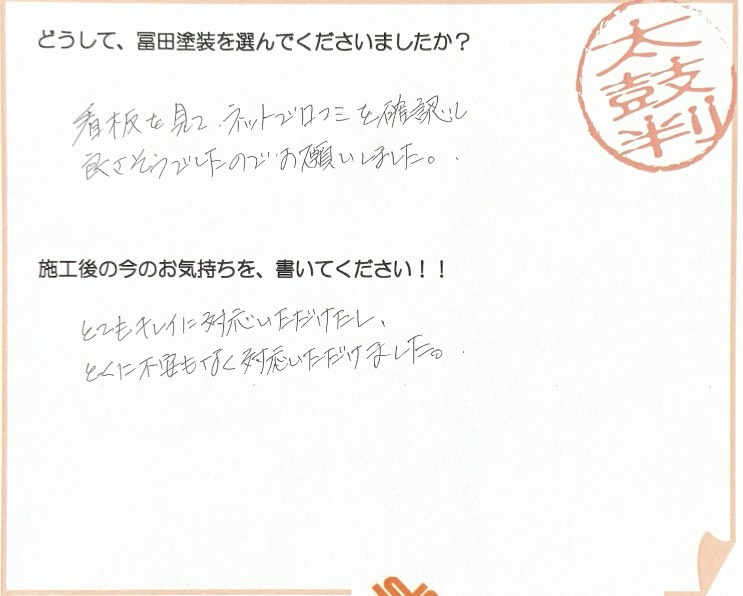 どうして、冨田塗装を選んでくださいましたか？
太鼓判
看板を見て、ネットで口コミを確認し
良さそうでしたのでお願いしました。
施工後の今のお気持ちを、書いてください！！
とてもキレイに対応いただけたし、
とくに不安もなく対応いただけました。